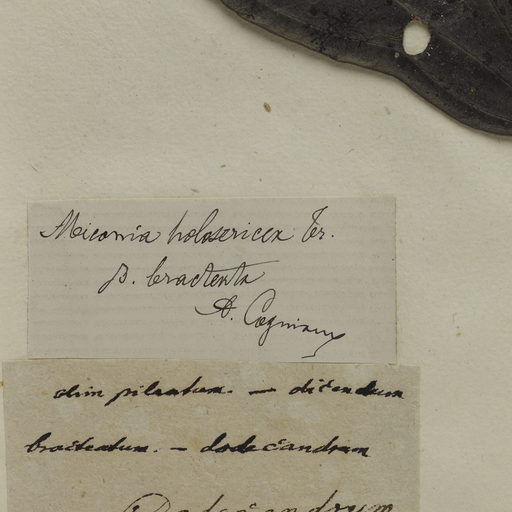 Miconia holosericea Tr.
β. bracteata
A. Cogniaux
olim pileatum. — dicendum
bracteatum. — dodecandrum
Dodecandrum